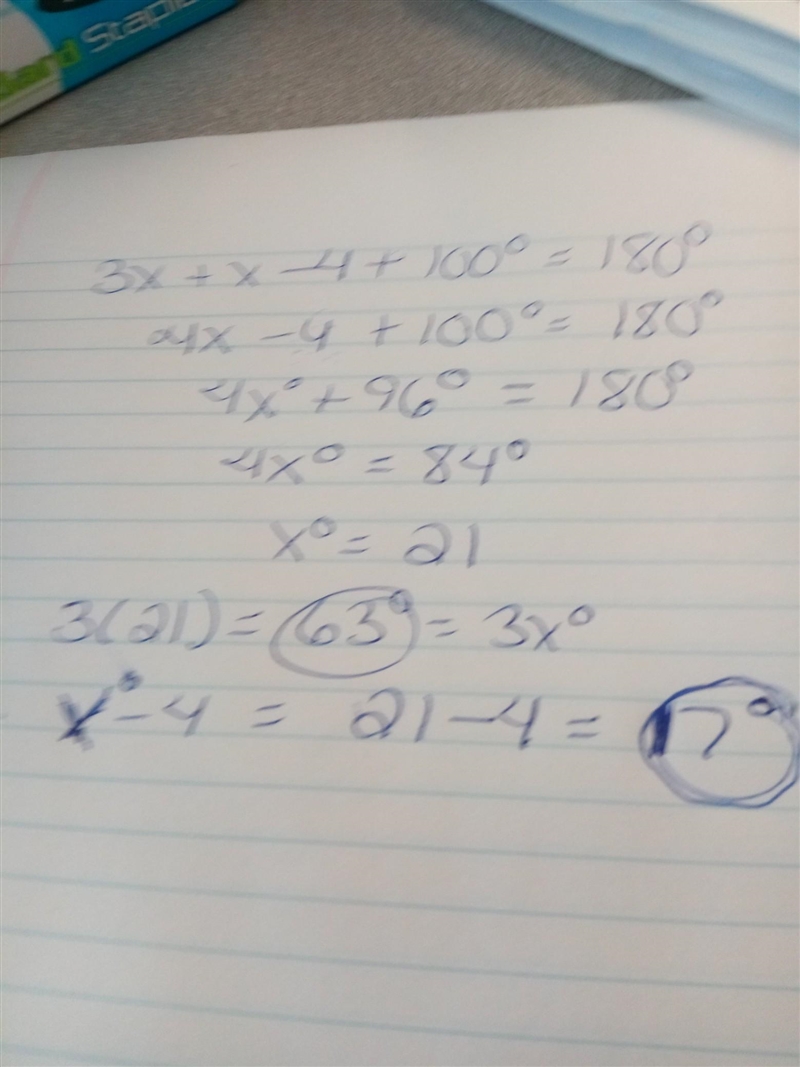 Band Staple
3x + x - 4 + 100° = 180°
4x - 4 + 100° = 180°
4x° + 96° = 180°
4x° = 84°
x° = 21
3(21) = 63° = 3x°
x° - 4 = 21 - 4 = 17°